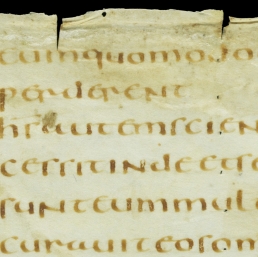 eumquomodo
perderent
hsautemscien
cessitindeetse
sunteummult
curauiteosom